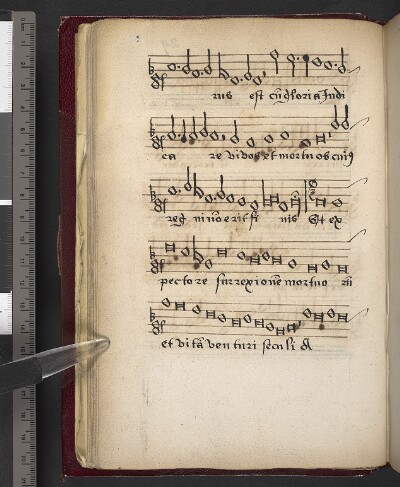 rus est cū gloria Indi
ca re vivos et mortuos cuiꝯ
regni nō erit fi nis Et ex
pecto re surrexionē mortuo rū
et vitā venturi seculi A